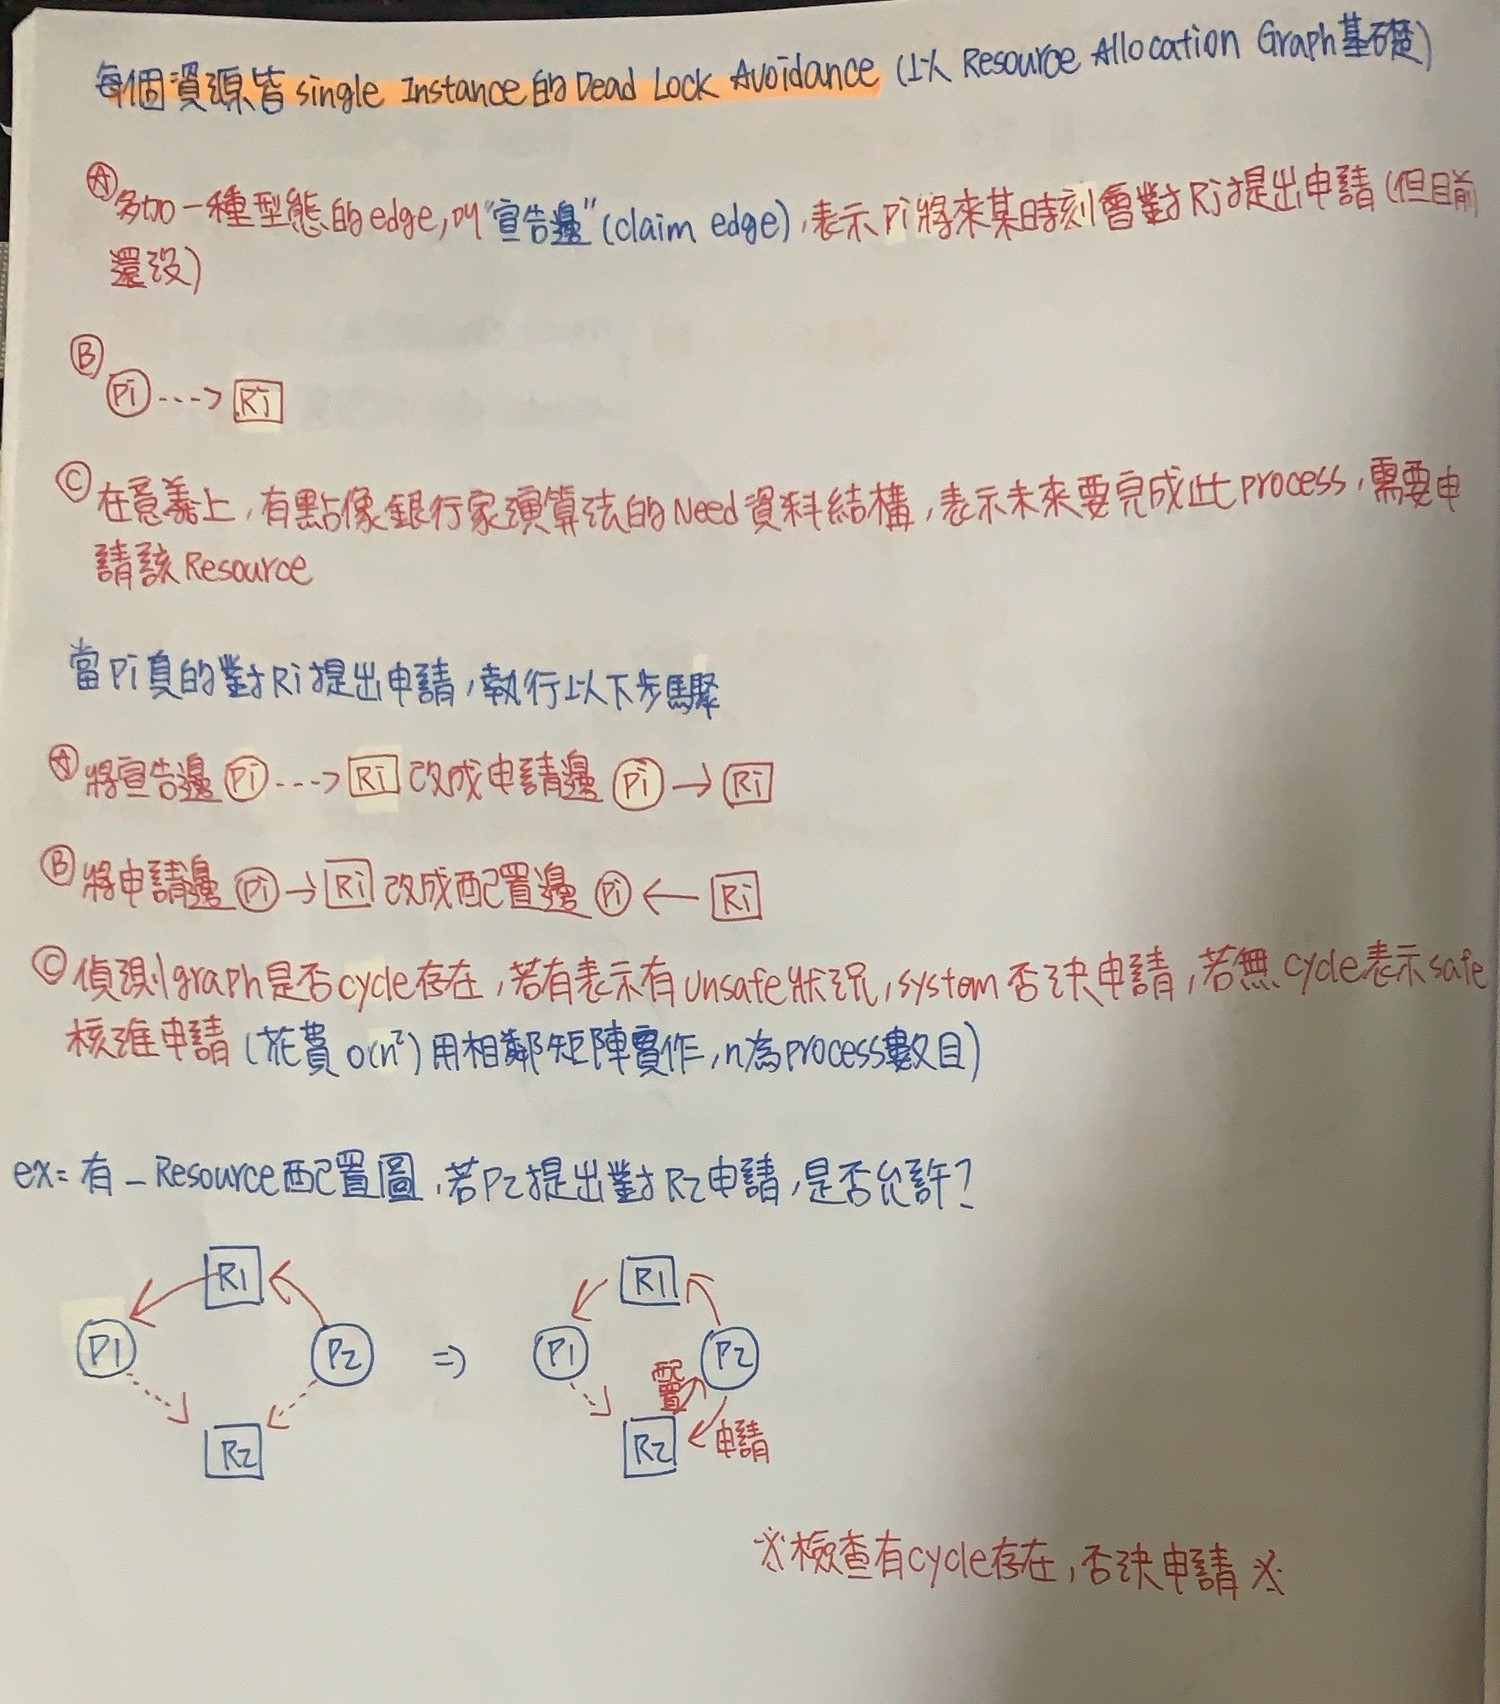 每個資源皆single Instance的Dead Lock Avoidance (以 Resource Allocation Graph基礎)
Ⓐ多加一種型態的edge,叫"宣告邊"(claim edge),表示Pi將來某時刻會對Rj提出申請(但目前
還沒)
Ⓑ
Pi ---> Rj
Ⓒ在意義上,有點像銀行家演算法的Need資料結構,表示未來要完成此process,需要申
請該Resource
當Pi真的對Ri提出申請,執行以下步驟
Ⓐ將宣告邊 Pi ---> Ri 改成申請邊 Pi → Ri
Ⓑ將申請邊 Pi → Ri 改成配置邊 Pi ← Ri
Ⓒ偵測graph是否cycle存在,若有表示有unsafe狀況,system否決申請,若無cycle表示safe
核准申請(花費O(n²)用相鄰矩陣實作,n為process數目)
ex=有一Resource配置圖,若P2提出對R2申請,是否允許?
R1 R1
P1 P2 => P1 P2
配置
R2 R2 申請
※檢查有cycle存在,否決申請※